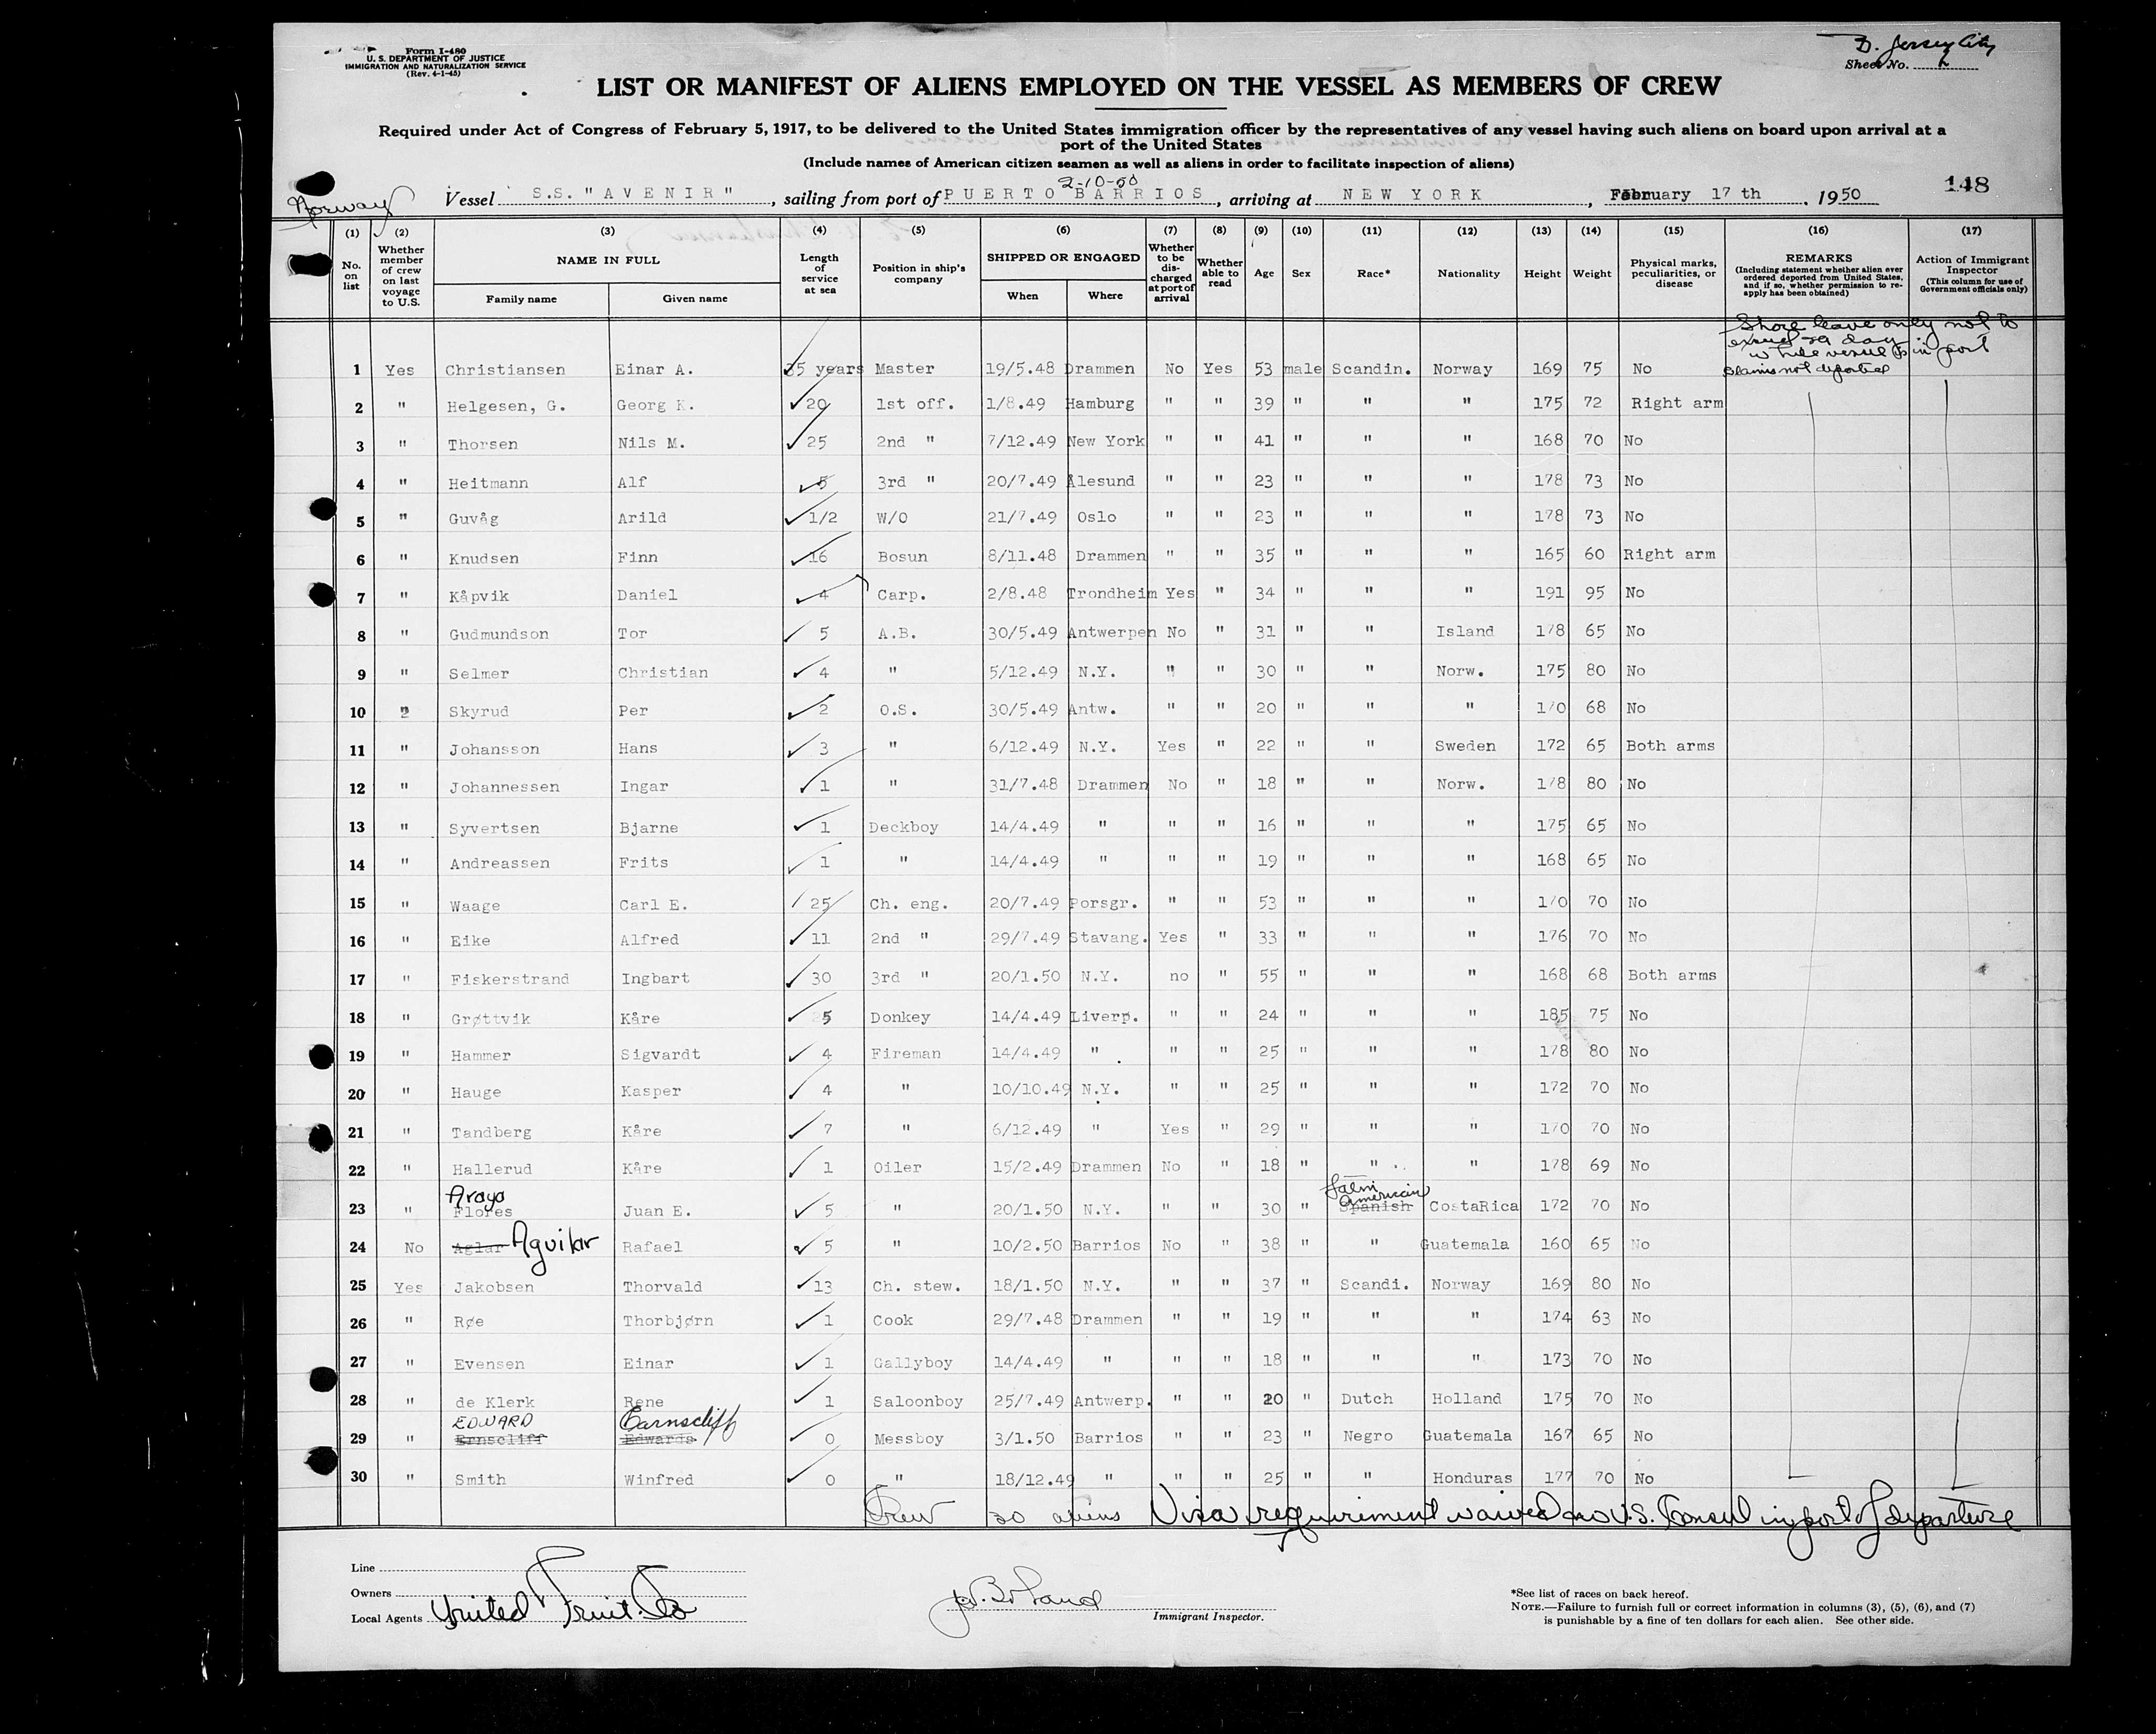 Form I-480
U. S. DEPARTMENT OF JUSTICE
IMMIGRATION AND NATURALIZATION SERVICE
(Rev. 4-1-45)
Jersey City
Sheet No. 2
LIST OR MANIFEST OF ALIENS EMPLOYED ON THE VESSEL AS MEMBERS OF CREW
Required under Act of Congress of February 5, 1917, to be delivered to the United States immigration officer by the representatives of any vessel having such aliens on board upon arrival at a
port of the United States
(Include names of American citizen seamen as well as aliens in order to facilitate inspection of aliens)
2-10-50
148
Norway
Vessel S.S. "AVENIR", sailing from port of PUERTO BARRIOS, arriving at NEW YORK, February 17 th, 1950
(1) (2) (3) (4) (5) (6) (7) (8) (9) (10) (11) (12) (13) (14) (15) (16) (17)
No. on list
Whether member of crew on last voyage to U.S.
NAME IN FULL
Family name
Given name
Length of service at sea
Position in ship's company
SHIPPED OR ENGAGED
When
Where
Whether to be discharged at port of arrival
Whether able to read
Age
Sex
Race*
Nationality
Height
Weight
Physical marks, peculiarities, or disease
REMARKS
(Including statement whether alien ever ordered deported from United States, and if so, whether permission to re-apply has been obtained)
Action of Immigrant Inspector
(This column for use of Government officials only)
Shore leave only not to
exceed 29 days
while vessel is in port
Claims not deported
1 Yes Christiansen Einar A. 35 years Master 19/5.48 Drammen No Yes 53 male Scandin. Norway 169 75 No
2 " Helgesen, G. Georg K. 20 1st off. 1/8.49 Hamburg " " 39 " " " 175 72 Right arm
3 " Thorsen Nils M. 25 2nd " 7/12.49 New York " " 41 " " " 168 70 No
4 " Heitmann Alf 5 3rd " 20/7.49 Ålesund " " 23 " " " 178 73 No
5 " Guvåg Arild 1/2 W/O 21/7.49 Oslo " " 23 " " " 178 73 No
6 " Knudsen Finn 16 Bosun 8/11.48 Drammen " " 35 " " " 165 60 Right arm
7 " Kåpvik Daniel 4 Carp. 2/8.48 Trondheim Yes " 34 " " " 191 95 No
8 " Gudmundson Tor 5 A.B. 30/5.49 Antwerpen No " 31 " " Island 178 65 No
9 " Selmer Christian 4 " 5/12.49 N.Y. " " 30 " " Norw. 175 80 No
10 " Skyrud Per 2 O.S. 30/5.49 Antw. " " 20 " " " 170 68 No
11 " Johansson Hans 3 " 6/12.49 N.Y. Yes " 22 " " Sweden 172 65 Both arms
12 " Johannessen Ingar 1 " 31/7.48 Drammen No " 18 " " Norw. 178 80 No
13 " Syvertsen Bjarne 1 Deckboy 14/4.49 " " " 16 " " " 175 65 No
14 " Andreassen Frits 1 " 14/4.49 " " " 19 " " " 168 65 No
15 " Waage Carl E. 25 Ch. eng. 20/7.49 Porsgr. " " 53 " " " 170 70 No
16 " Eike Alfred 11 2nd " 29/7.49 Stavang. Yes " 33 " " " 176 70 No
17 " Fiskerstrand Ingbart 30 3rd " 20/1.50 N.Y. no " 55 " " " 168 68 Both arms
18 " Grøttvik Kåre 5 Donkey 14/4.49 Liverp. " " 24 " " " 185 75 No
19 " Hammer Sigvardt 4 Fireman 14/4.49 " " " 25 " " " 178 80 No
20 " Hauge Kasper 4 " 10/10.49 N.Y. " " 25 " " " 172 70 No
21 " Tandberg Kåre 7 " 6/12.49 " Yes " 29 " " " 170 70 No
22 " Hallerud Kåre 1 Oiler 15/2.49 Drammen No " 18 " " " 178 69 No
Araya Latin American
23 " Flores Juan E. 5 " 20/1.50 N.Y. " " 30 " Spanish CostaRica 172 70 No
24 No Aglar Aguilar Rafael 5 " 10/2.50 Barrios No " 38 " " Guatemala 160 65 No
25 Yes Jakobsen Thorvald 13 Ch. stew. 18/1.50 N.Y. " " 37 " Scandi. Norway 169 80 No
26 " Røe Thorbjørn 1 Cook 29/7.48 Drammen " " 19 " " " 174 63 No
27 " Evensen Einar 1 Gallyboy 14/4.49 " " " 18 " " " 173 70 No
28 " de Klerk Rene 1 Saloonboy 25/7.49 Antwerp. " " 20 " Dutch Holland 175 70 No
EDWARD Earnscliff
29 " Ernscliff Edwards 0 Messboy 3/1.50 Barrios " " 23 " Negro Guatemala 167 65 No
30 " Smith Winfred 0 " 18/12.49 " " " 25 " " Honduras 177 70 No
Crew 30 aliens Visa requirement waived no U.S. Consul in port of departure
Line
Owners
Local Agents United Fruit Co
Immigrant Inspector.
*See list of races on back hereof.
NOTE.—Failure to furnish full or correct information in columns (3), (5), (6), and (7)
is punishable by a fine of ten dollars for each alien. See other side.